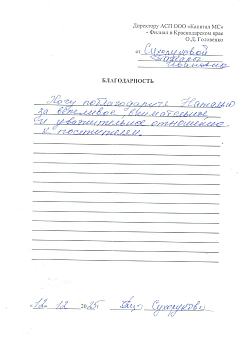 Директору АСП ООО «Капитал МС»
- Филиал в Краснодарском крае
О.Д. Головенко
от Сухоруковой
БЛАГОДАРНОСТЬ
Хочу поблагодарить Наталью
за вежливое, внимательное
и уважительное отношение
к посетителям.
«12» 12 2025 г Сухорукова